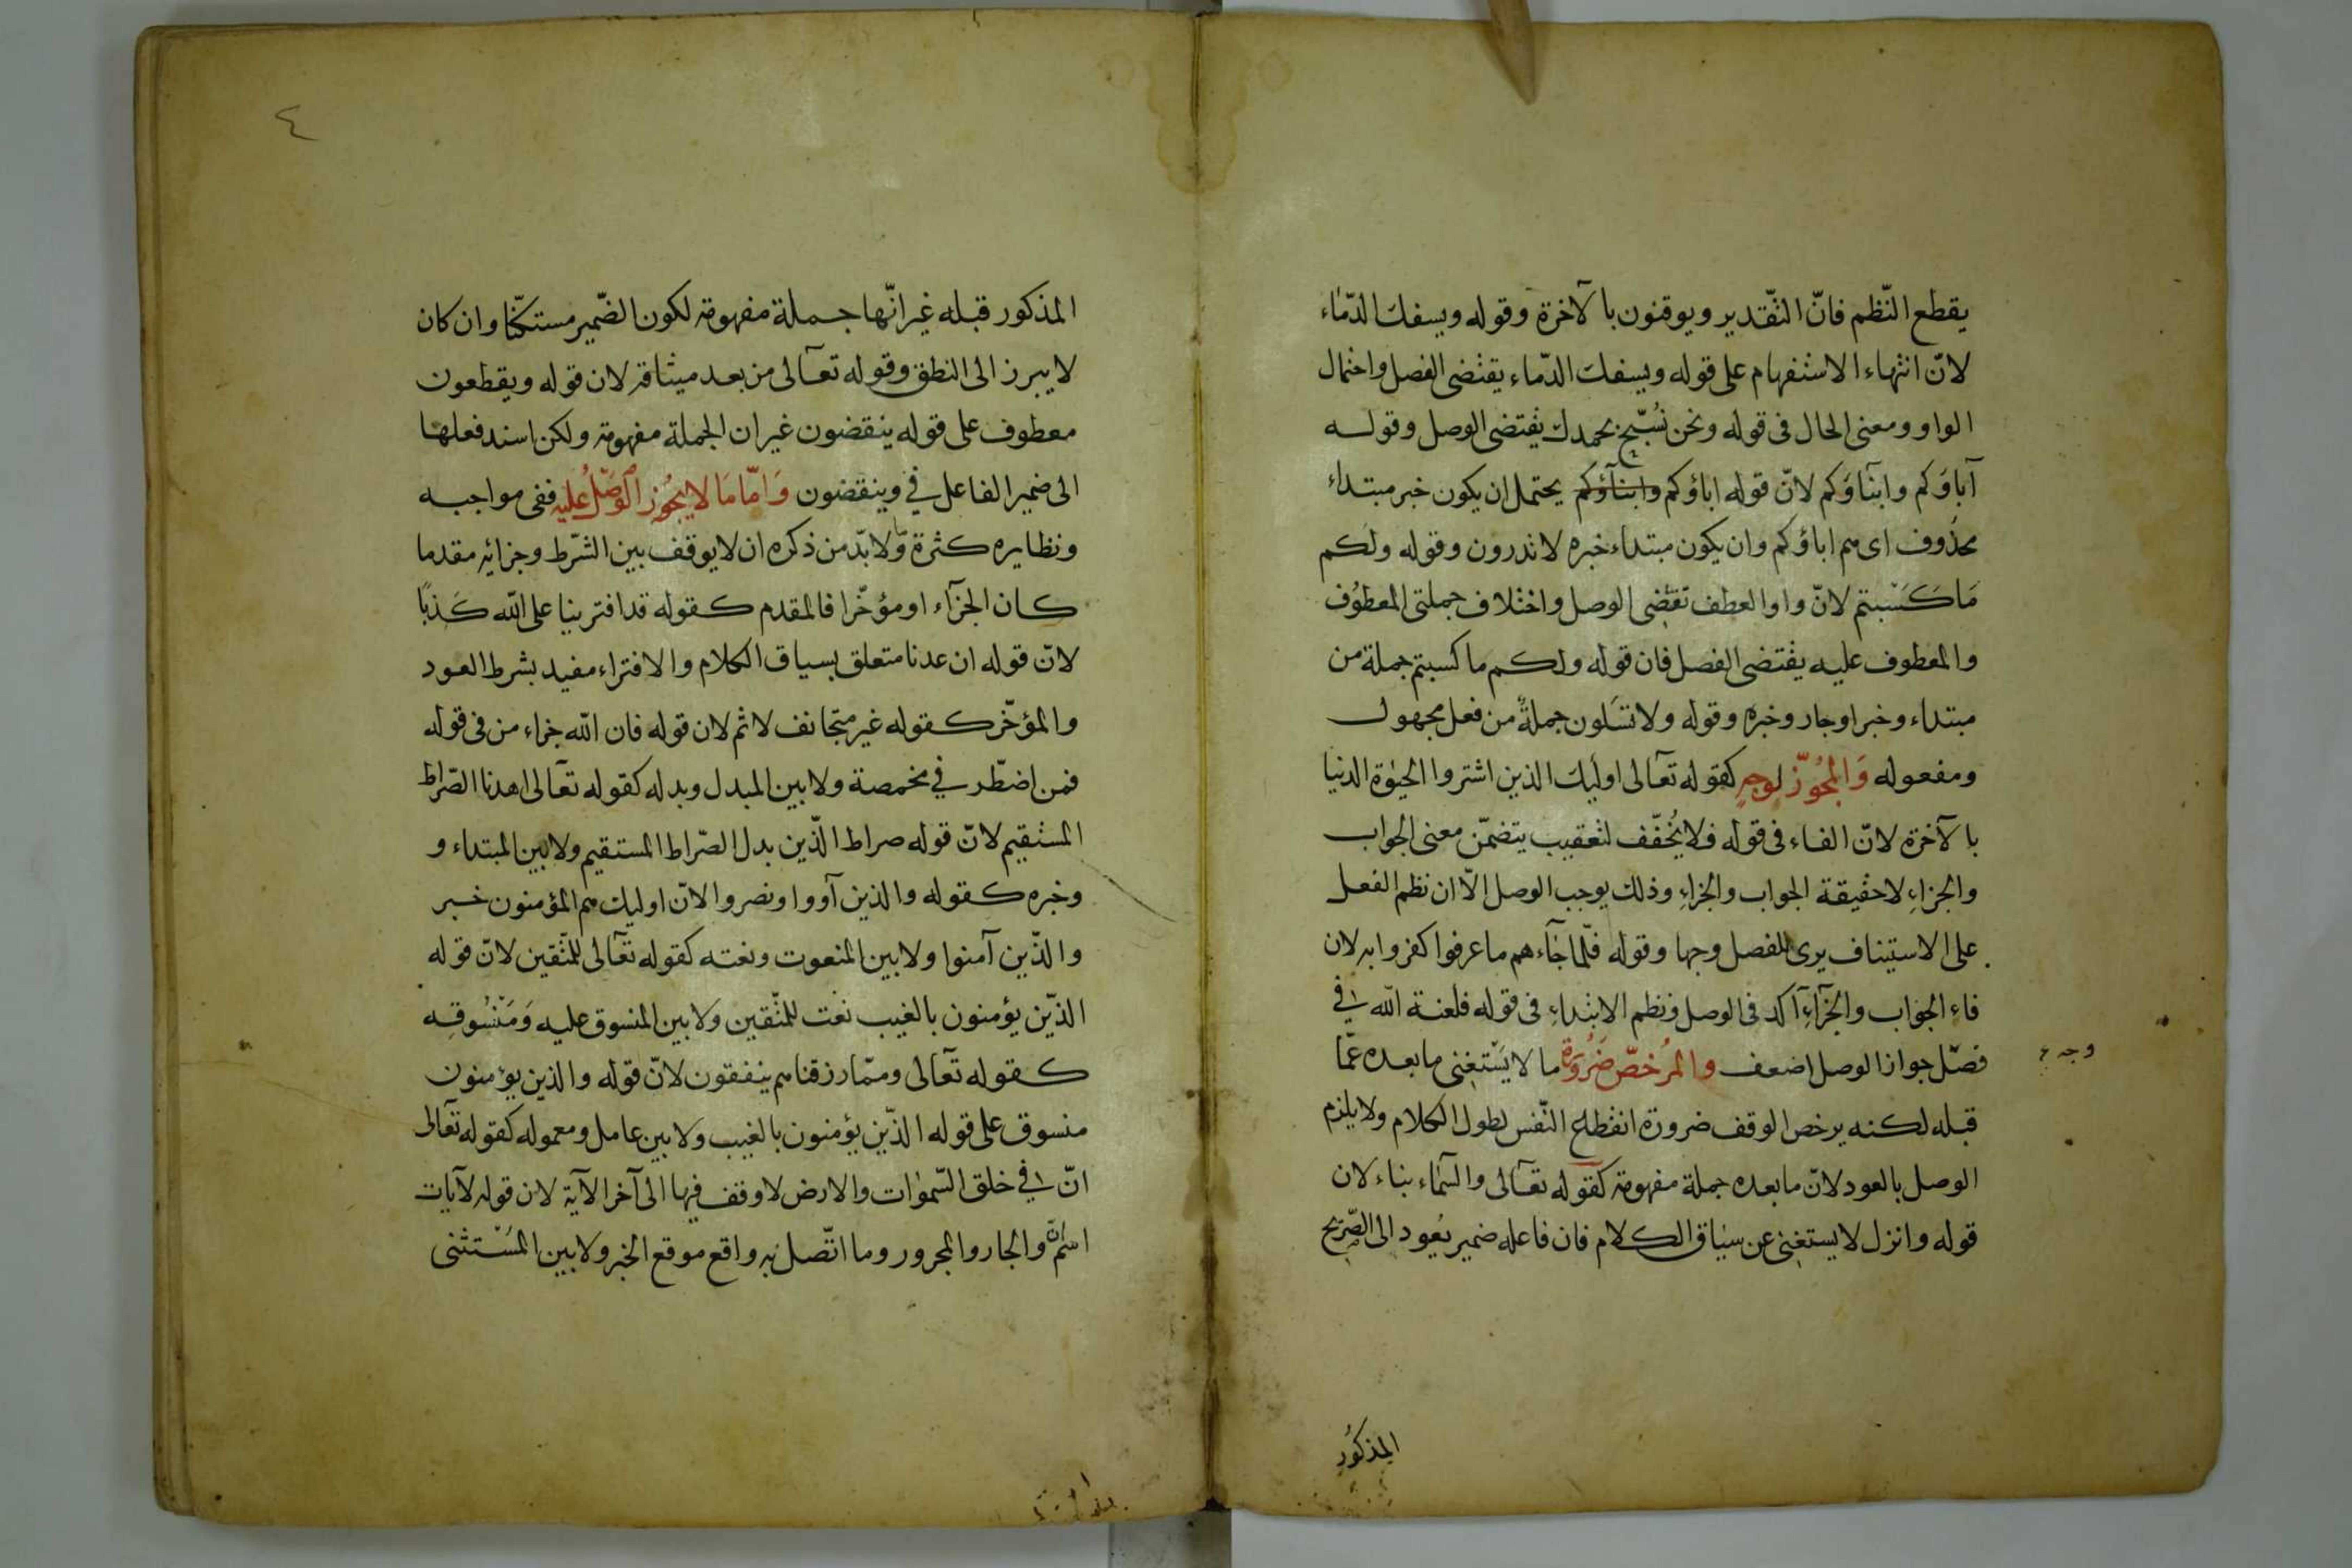 يقطع النّظم فانّ التّقدير ويوقنون بالآخرة وقوله ويسفك الدّماء
لانّ انتهاء الاستفهام على قوله ويسفك الدّماء يقتضى الفصل واحتمال
الواو ومعنى الحال فى قوله ونحن نُسَبّح بحمدك يقتضى الوصل وقوله
آباؤكم وابناؤكم لانّ قوله اباؤكم وابناؤكم يحتمل ان يكون خبر مبتداء
محذوف اى هم اباؤكم وان يكون مبتداء خبره لا تدرون وقوله ولكم
مَا كَسَبتم لانّ واو العطف تقتضى الوصل واختلاف جملتى المعطوف
والمعطوف عليه يقتضى الفصل فان قوله ولكم ما كسبتم جملة من
مبتداء وخبر اوجار وخبره وقوله ولا تسَلون جملةٌ من فعل مجهول
ومفعوله وَالمُجوّز لوجهٍ كقوله تعالى اوليك الذين اشتروا الحيوة الدنيا
بالآخرة لانّ الفاء فى قوله فلا يُخفّف لتعقيب يتضمّن معنى الجواب
والجزاءِ لا حقيقة الجواب والجزاءِ وذلك يوجب الوصل الّا ان نظم الفعل
على الاستيناف يرى للفصل وجها وقوله فلّما جَآءهم ما عرفوا كفروا به لان
فاء الجواب والجزآءِ آكد فى الوصل ونظم الابتداءِ فى قوله فلعنة الله فى
فصّل جواز الوصل اضعف والمُرخصّ ضَرُورَة ما لا يَسْتغنى ما بعده عمّا
وجه
قبله لكنه يرخص الوقف ضرورة انقطاع النّفس لطول الكلام ولا يلزم
الوصل بالعود لانّ ما بعده جملة مفهومة كقوله تعالى والسّماء بناء لان
قوله وانزل لا يستغنى عن سيَاق الكلام فان فاعله ضمير يعُود الى الصّريح
المذكُور
٤
المذكور قبله غير انّها جملة مفهومة لكون الضّمير مستكنّا وان كان
لا يبرز الى النطق وقوله تعآلى من بعد ميثاقه لان قوله ويقطعون
معطوف على قوله ينقضون غير ان الجملة مفهومة ولكن اسند فعلها
الى ضمير الفاعل فى وينقضون وَامّا مَا لا يجُوز الوَصْلُ عليه ففى مواجبه
ونظايره كثرة ولا بدّ من ذكره ان لا يوقف بين الشّرط وجزائه مقدما
كان الجزآء او مؤخّرا فالمقدم كقوله قد افترينا على الله كَذبًا
لانّ قوله ان عدنا متعلق بسياق الكلام والافتراء مفيد بشرط العود
والمؤخّر كقوله غير متجانف لاثم لان قوله فان الله جزاء من فى قوله
فمن اضطّر فى مخمصة ولا بين المبدل وبدله كقوله تعآلى اهدنا الصّراط
المستقيم لانّ قوله صراط الّذين بدل الصّراط المستقيم ولا بين المبتداء و
وخبره كقوله والذين آووا ونصروا لانّ اوليك هم المؤمنون خبر
والذّين آمنوا ولا بين المنعوت ونعته كقوله تعآلى للمتّقين لانّ قوله
الذّين يؤمنون بالغيب نعت للمتّقين ولا بين المنسوق عليه وَمَنْسُوقِه
كقوله تعآلى وممّا رزقناهم ينفقون لانّ قوله والذين يؤمنون
منسوق على قوله الذّين يؤمنون بالغيب ولا بين عامل ومعموله كقوله تعآلى
انّ فى خلق السّموات والارض لا وقف فيها الى آخر الآية لان قوله لآيات
اسم انّ والجار والمجرور وما اتّصل به واقع موقع الخبر ولا بين المُسْتثنى